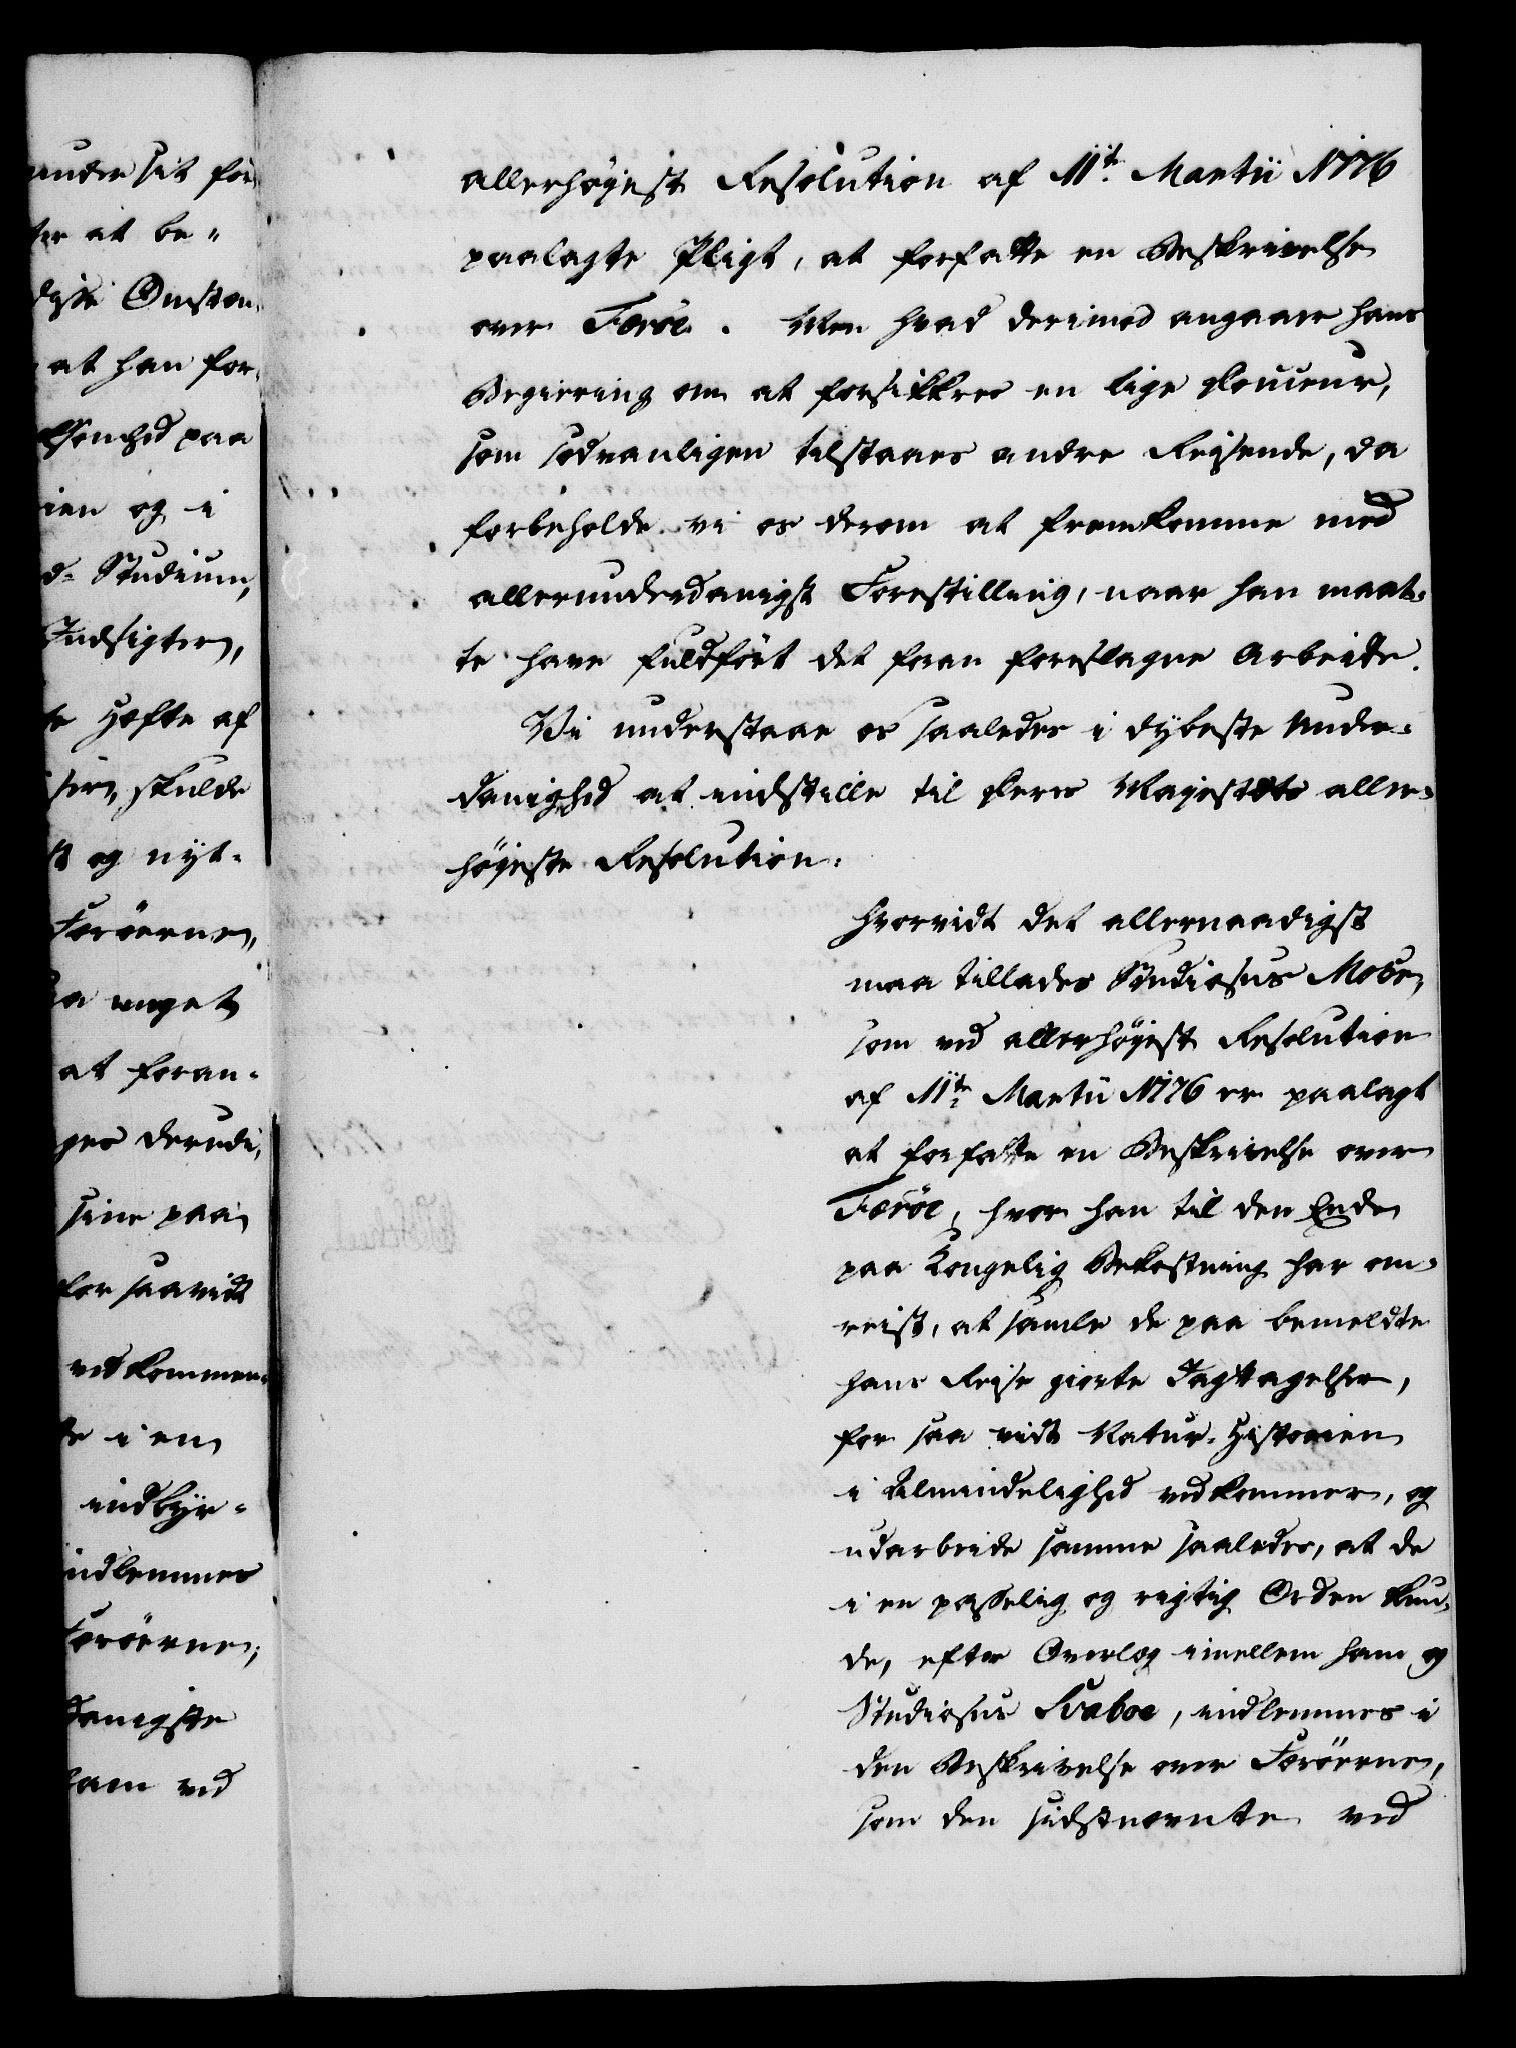 under sit for
ter at be"
disse Omstæn-
at han for-
somhed paa
ien og i
d= Studium,
Indsigter,
se Hefte af
sier, skulde
og nyt-
Færøerne,
saa meget
at foran-
ges derudi,
sine paa
for saavidt
vedkommen-
te i en
indbyr-
indlemmes
Færøerne,
danigste
ham ved
allerhøyest Resolution af 11te Martii 1776
paalagte Pligt, at forfatte en Beskrivelse
over Færøe. Men hvad derimod angaaer hans
Begiering om at forsikkres en lige Douceur,
som sædvanligen tilstaaes andre Reisende, da
forbeholde vi os derom at fremkomme med
allerunderdanigst Forestilling, naar han maat-
te have fuldført det foran foreslagne Arbeide.
Vi understaae os saaledes i dybeste Under-
danighed at indstille til Deres Majestæts aller-
høyeste Resolution.
Hvorvidt det allernaadigst
maa tillades Studiosus Mohr,
som ved allerhøyest Resolution
af 11te Martii 1776 er paalagt
at forfatte en Beskrivelse over
Færøe, hvor han til den Ende
paa Kongelig Bekostning har om-
reist, at samle de paa bemeldte
hans Reise giorte Iagttagelser,
for saa vidt Natur-Historien
i Almindelighed vedkommer, og
udarbeide samme saaledes, at de
i en passelig og rigtig Orden kun-
de, efter Overlæg imellem ham og
Studiosus Svaboe, indlemmes i
den Beskrivelse over Færøerne,
som den sidstnævnte ved